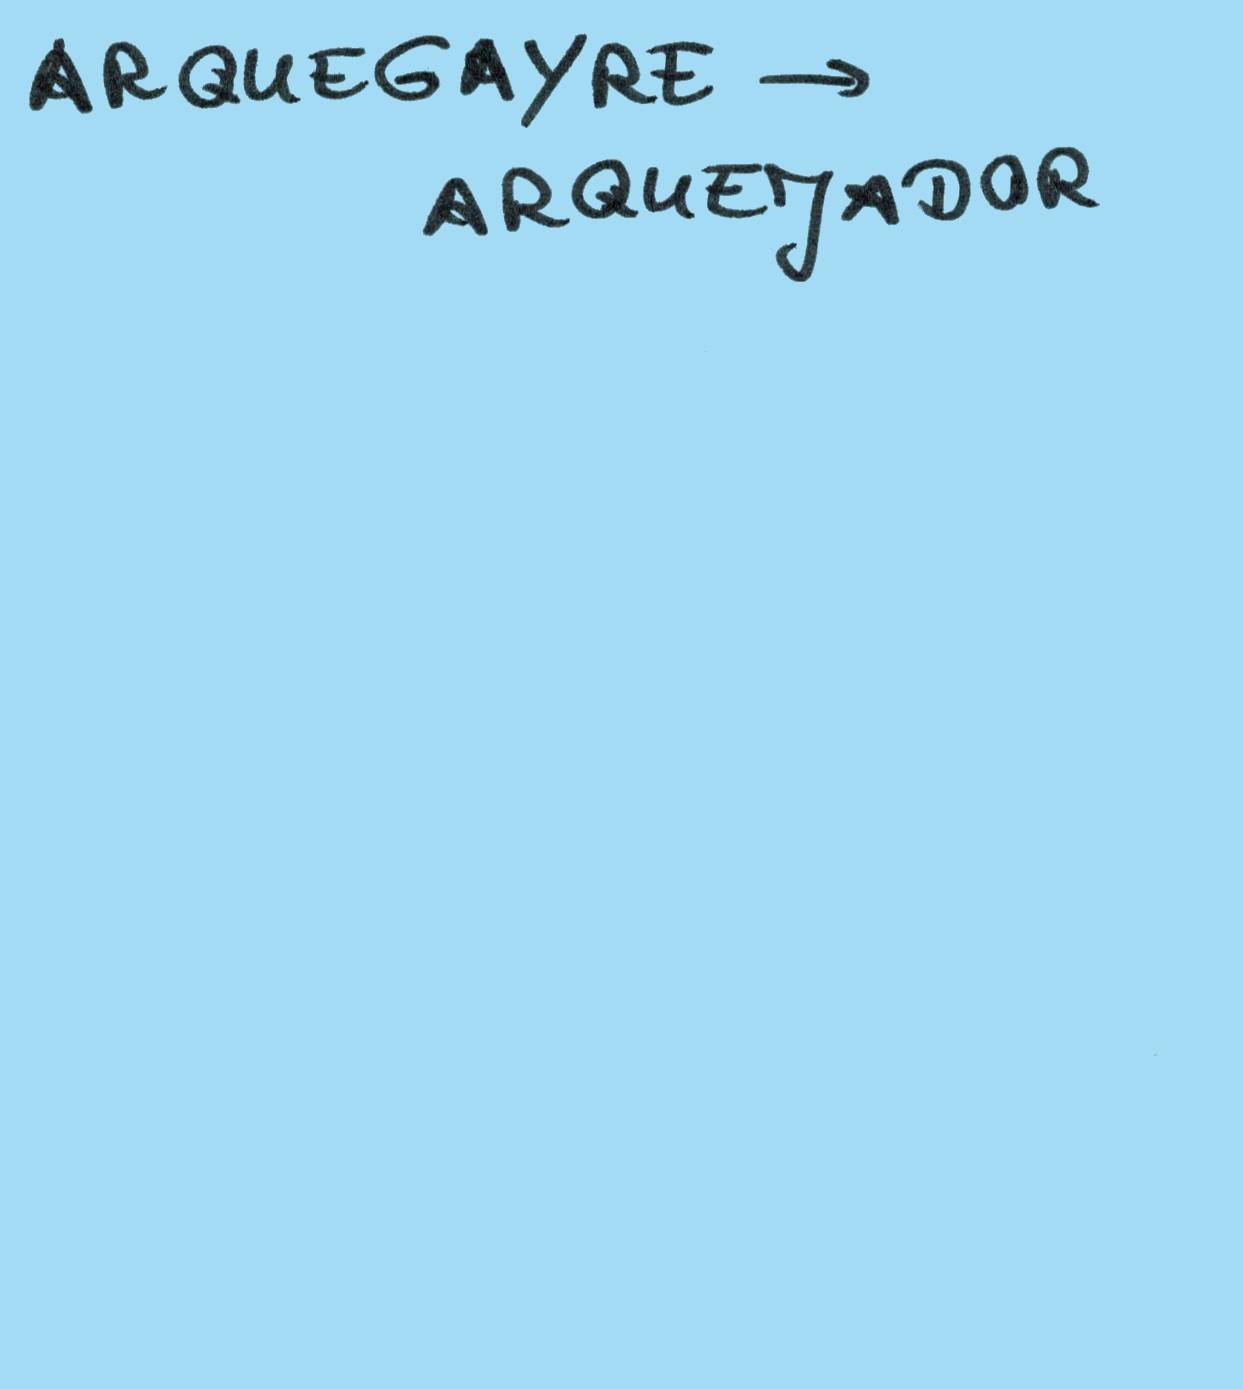 ARQUEGAYRE →
ARQUEJADOR